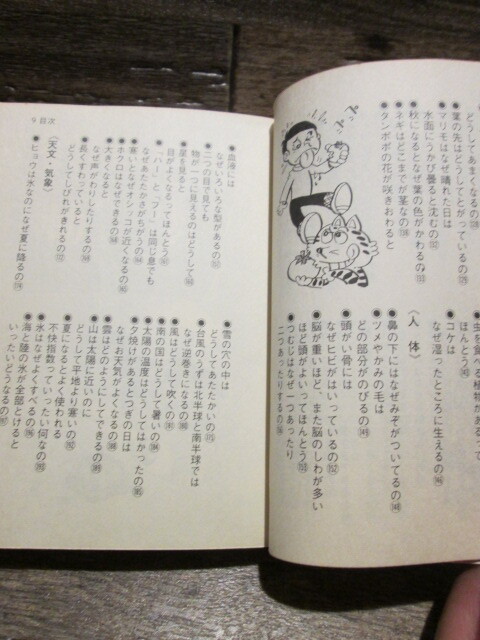 どうしてあまくなるの
●葉の先はどうしてとがっているの
●マリモはなぜ晴れた日は
水面にうかび曇ると沈むの
●秋になるとなぜ葉の色がかわるの
●ネギはどこまでが茎なの
●タンポポの花が咲きおわると
ほんとう
●コケは
なぜ湿ったところに生えるの
〈人 体〉
●鼻の下にはなぜみぞがついてるの
●ツメやかみの毛は
どの部分がのびるの
●頭がい骨には
なぜヒビがはいっているの
●脳が重いほど、また脳のしわが多い
ほど頭がよいってほんとう
●つむじはなぜ一つあったり
二つあったりするの
9 目次
●血液には
なぜいろいろな型があるの
●二つの目で見ても
物が一つに見えるのはどうして
●星を見ると
目がよくなるってほんとう
●「ハー」と「フー」は同じ息でも
なぜあたたかさがちがうの
●寒いとなぜオシッコが近くなるの
●ホクロはなぜできるの
●大きくなると
なぜ声がわりしたりするの
●長くすわっていると
どうしてしびれがきれるの
〈天文・気象〉
●ヒョウは氷なのになぜ夏に降るの
●雪の穴の中は
どうしてあたたかいの
●台風のうずは北半球と南半球では
なぜ逆巻きになるの
●風はどうして吹くの
●南の国はどうして暑いの
●太陽の温度はどうしてはかったの
●夕焼けがあるとつぎの日は
なぜお天気がよくなるの
●雲はどのようにしてできるの
●山は太陽に近いのに
どうして平地より寒いの
●夏になるとよく使われる
不快指数っていったい何なの
●氷はなぜよくすべるの
●海と陸の氷が全部とけると
いったいどうなるの